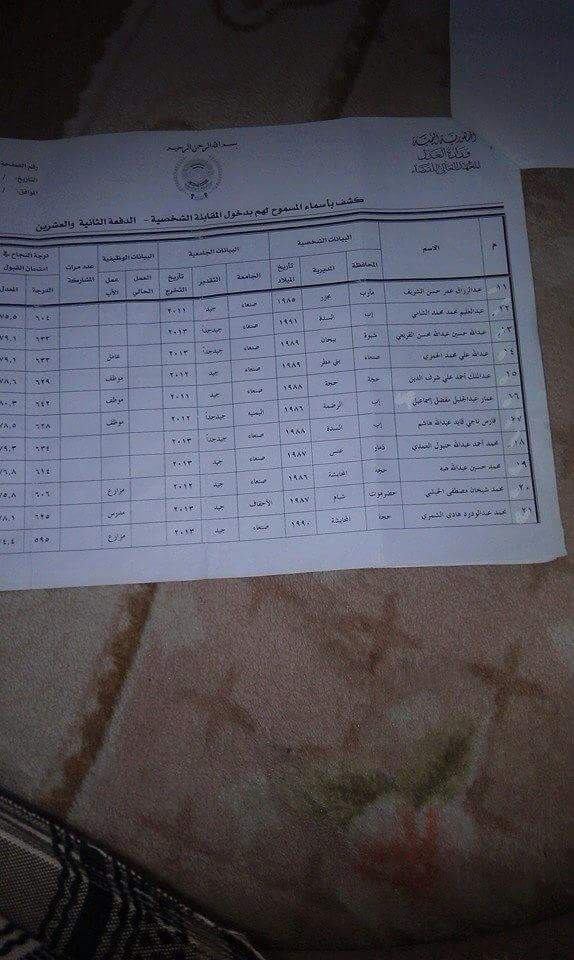 بسم الله الرحمن الرحيم
الجمهورية اليمنية
وزارة العدل
المعهد العالي للقضاء
رقم الصفحة
التاريخ: /
الموافق: /
كشف بأسماء المسموح لهم بدخول المقابلة الشخصية - الدفعة الثانية والعشرين
م الاسم البيانات الشخصية البيانات الجامعية البيانات الوظيفية عدد مرات المشاركة درجة النجاح في امتحان القبول
المحافظة المديرية تاريخ الميلاد الجامعة التقدير تاريخ التخرج العمل الحالي عمل الأب الدرجة المعدل
١١ عبدالرزاق عمر حسن الشريف مأرب ١٩٨٥ صنعاء جيد ٢٠١١ ٦٠٤ ٧٥,٥
١٢ عبدالعليم محمد محمد الشامي إب السدة ١٩٩١ صنعاء جيدجداً ٢٠١٣ ٦٣٣ ٧٩,١
١٣ عبدالله حسين عبدالله محسن شبوة بيحان ١٩٨٩ صنعاء جيدجداً ٢٠١٣ عامل ٦٣٣ ٧٩,١
١٤ عبدالله علي محمد الحمزي صنعاء بني مطر ١٩٨٩ صنعاء جيد ٢٠١٢ موظف ٦٢٩ ٧٨,٦
١٥ عبدالملك أحمد علي شرف الدين حجة حجة ١٩٨٨ صنعاء جيدجداً ٢٠١٣ موظف ٦٤٢ ٨٠,٣
١٦ عمار عبدالجليل مفضل إسماعيلي إب الرضمة ١٩٨٦ اليمنية جيد ٢٠١٢ موظف ٦٢٨ ٧٨,٥
١٧ فارس ناجي قايد عبدالله هاشم إب السدة ١٩٨٨ صنعاء جيدجداً ٢٠١٣ ٦٣٤ ٧٩,٣
١٨ محمد أحمد عبدالله ذمار عنس ١٩٨٧ صنعاء جيد ٢٠١٣ ٦١٤ ٧٦,٨
١٩ محمد حسين عبدالله حجة المحابشة ١٩٨٦ صنعاء جيد ٢٠١٢ مزارع ٦٠٦ ٧٥,٨
٢٠ محمد شيخان مصطفى حضرموت شبام ١٩٨٧ الأحقاف جيد ٢٠١٣ مدرس ٦٢٥ ٧٨,١
٢١ محمد هادي الشمري حجة المحابشة ١٩٩٠ صنعاء جيد ٢٠١٣ مزارع ٥٩٥ ٧٤,٤